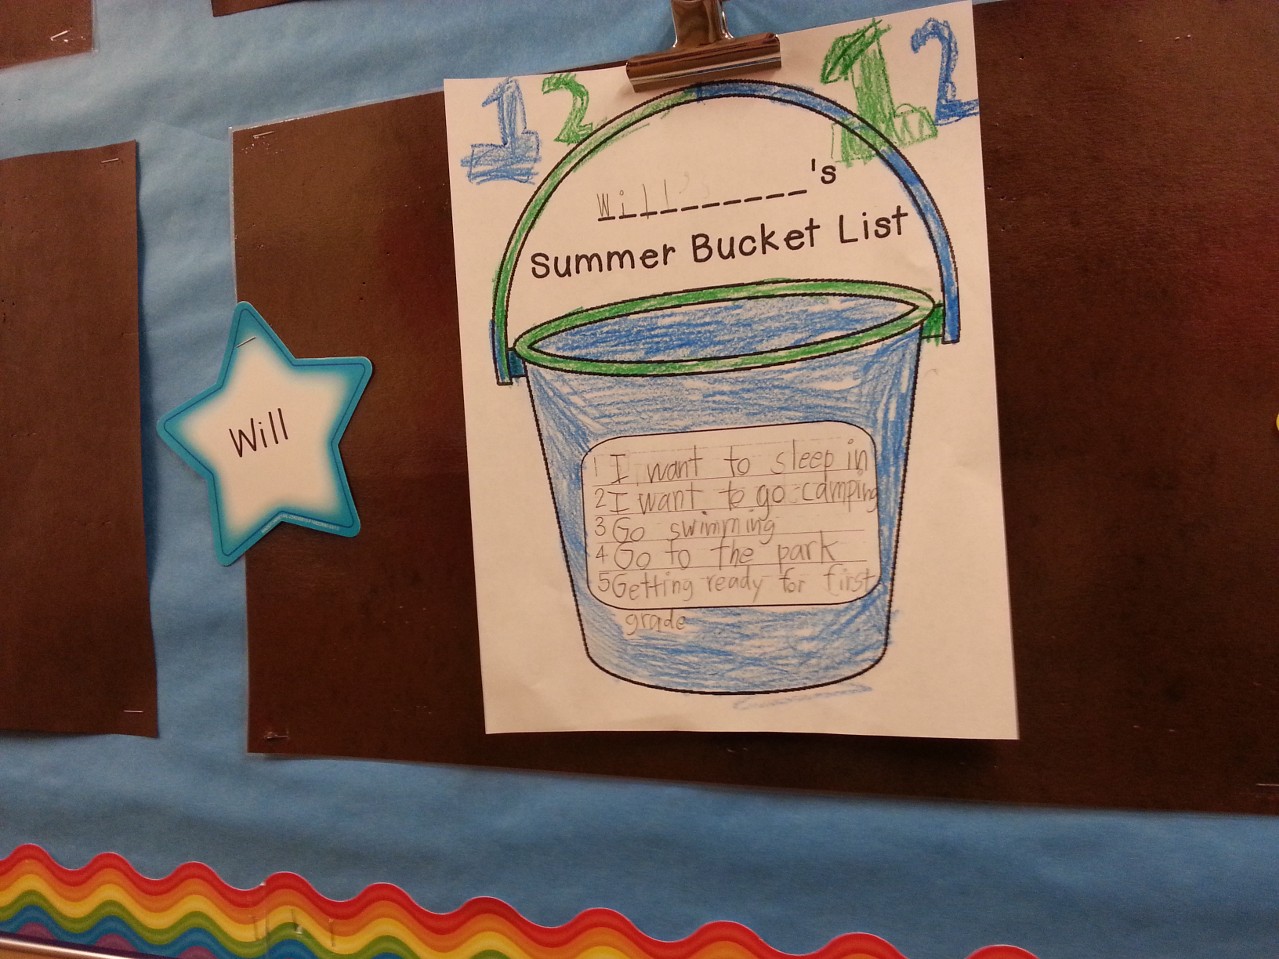 12
12
Will's
's
Summer Bucket List
Will
1 I want to sleep in
2 I want to go camping
3 Go swimming
4 Go to the park
5 Getting ready for first
grade